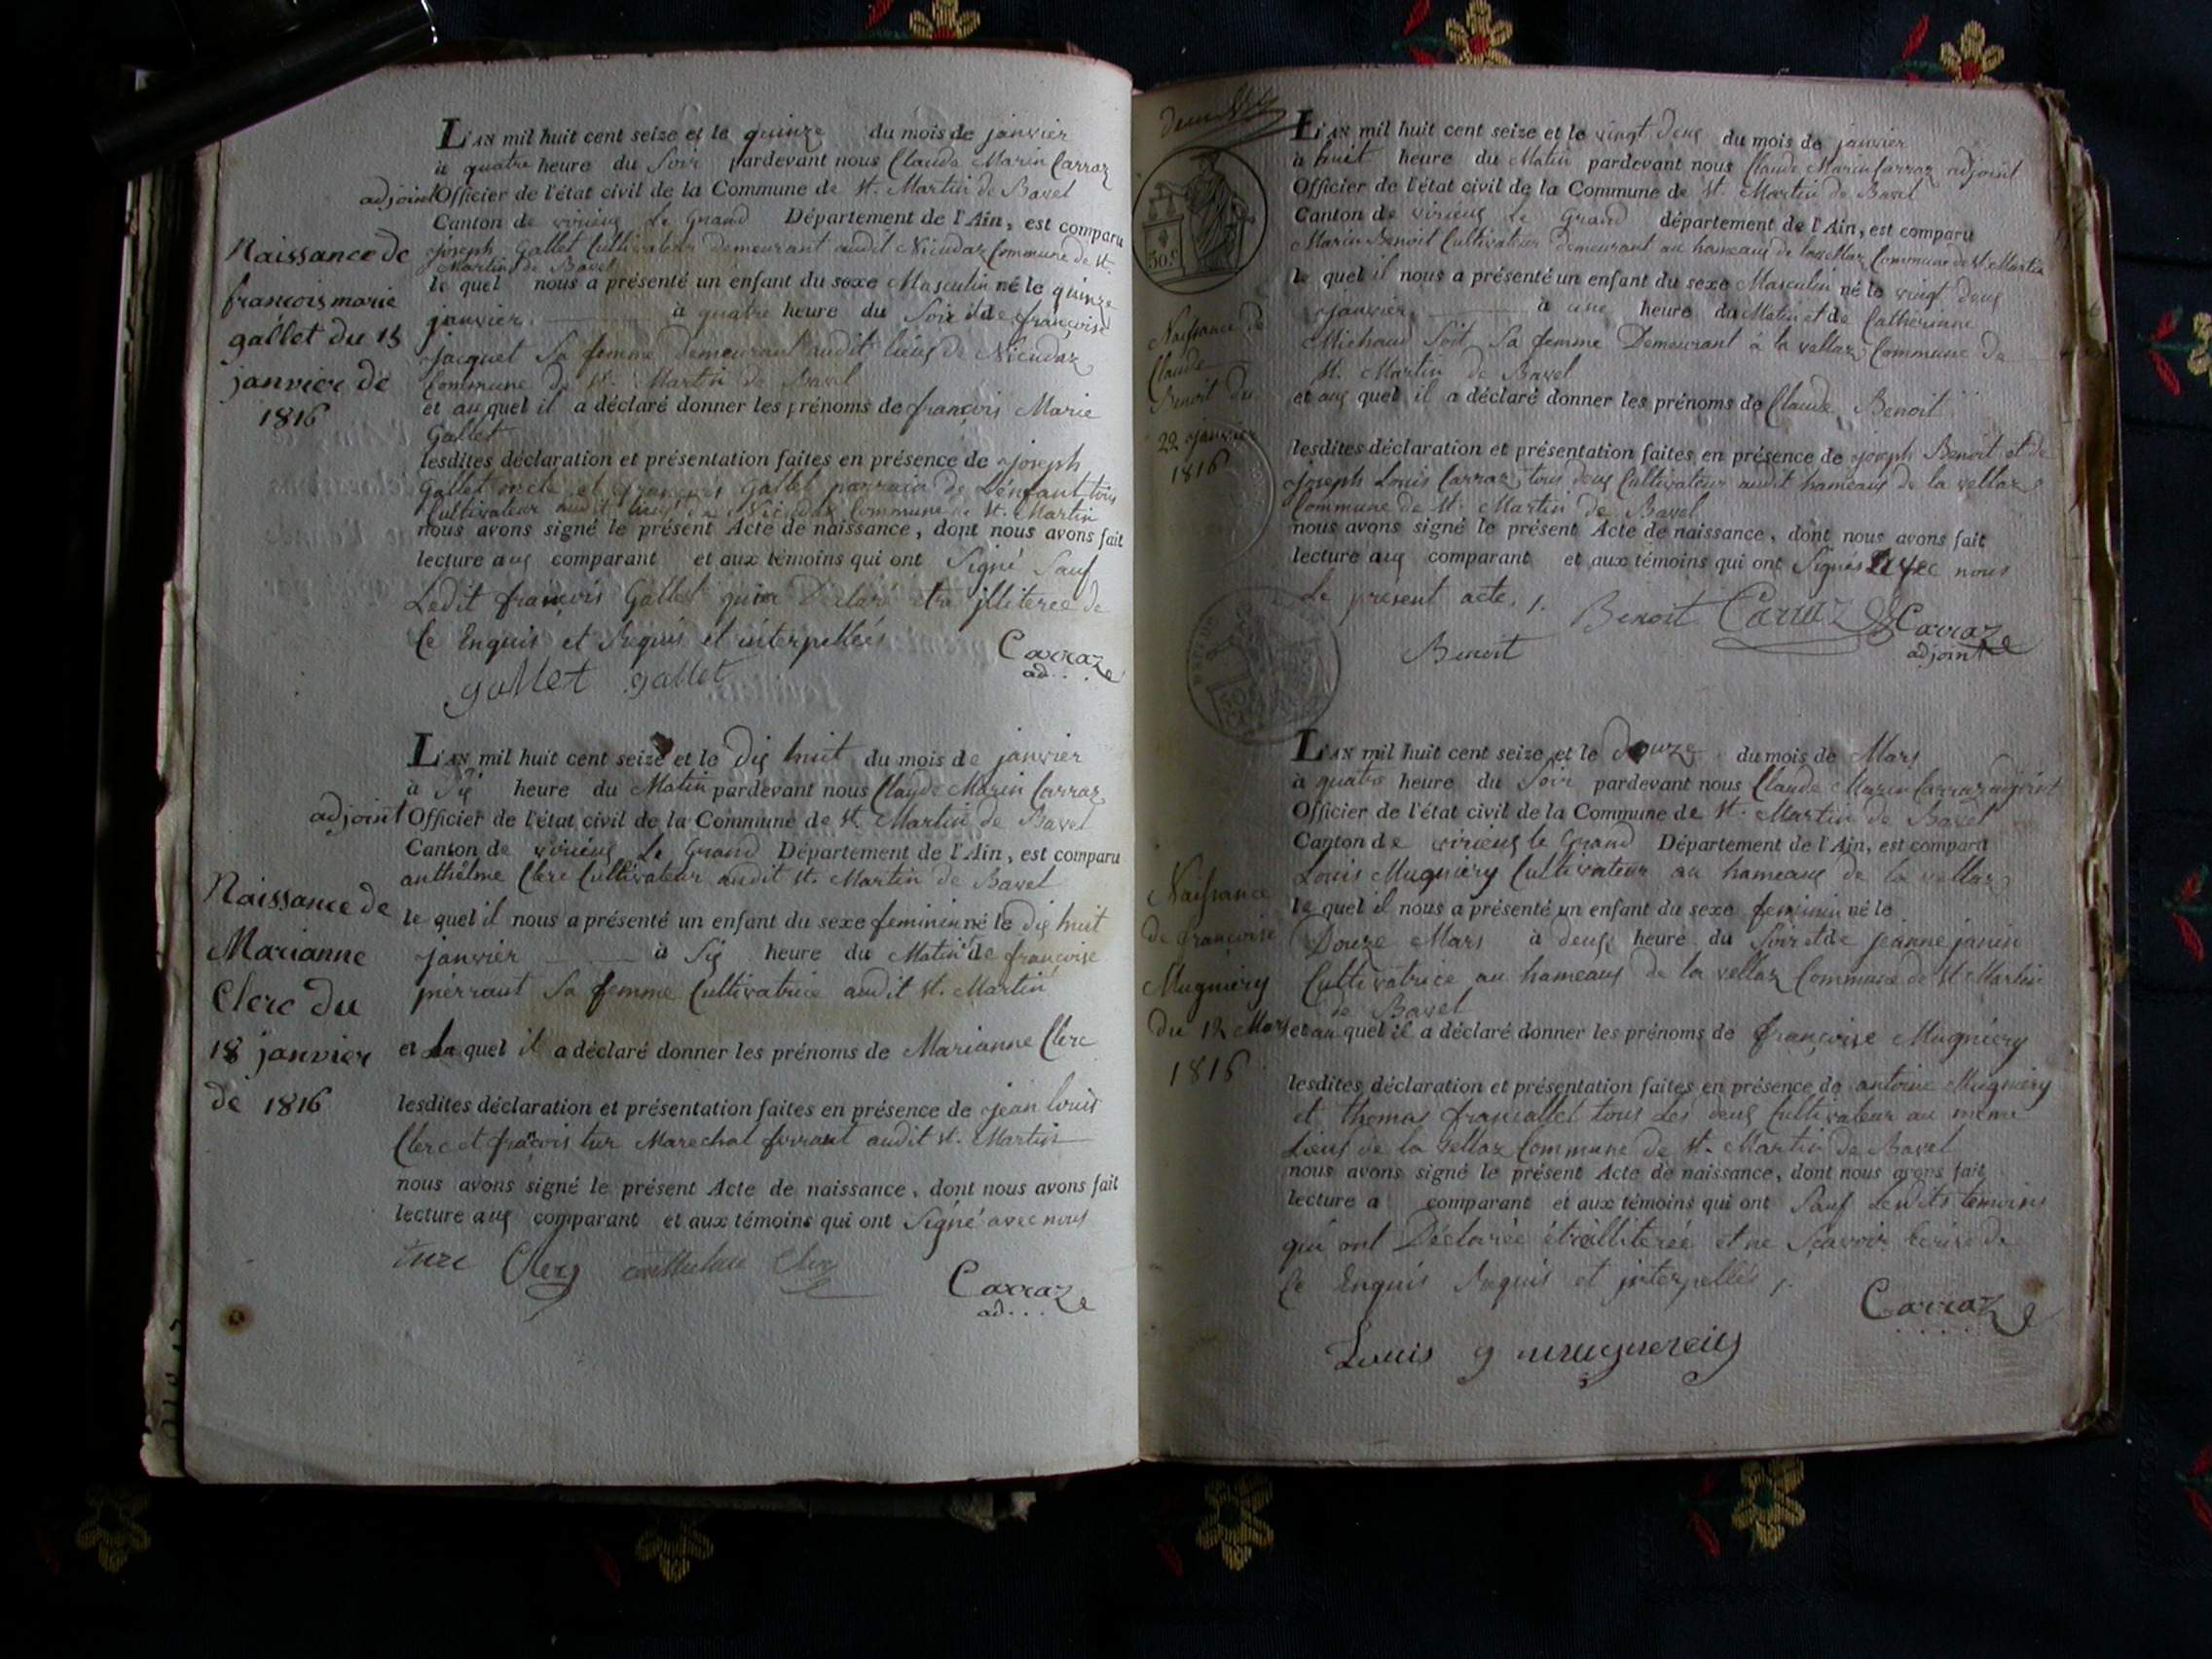 L'AN mil huit cent seize et le quinze du mois de janvier
à quatre heure du Soir pardevant nous Claude Marin Carraz
adjoint Officier de l'état civil de la Commune de St. Martin de Bavel
Canton de virieux Le Grand Département de l'Ain, est comparu
joseph Gallet Cultivateur demeurant audit Commune de St.
Martin de Bavel
le quel nous a présenté un enfant du sexe Masculin né le quinze
janvier à quatre heure du Soir et de françoise
jacquet Sa femme demeurant audit lieux de
Commune de St. Martin de Bavel
et au quel il a déclaré donner les prénoms de françois Marie
Gallet
lesdites déclaration et présentation faites en présence de joseph
Gallet oncle et françois Gallet parrain de L'énfant tous
Cultivateur audit lieux de Commune de St. Martin
nous avons signé le présent Acte de naissance, dont nous avons fait
lecture aux comparant et aux témoins qui ont Signé Sauf
Ledit françois Gallet qui a Déclaré etre jlliteree de
Ce Enquis et Requis et interpelleés
Carraz
ad...
gallet gallet
Naissance de
francois marie
gallet du 15
janvier de
1816
L'AN mil huit cent seize et le dix huit du mois de janvier
à Six heure du Matin pardevant nous Claude Marin Carraz
adjoint Officier de l'état civil de la Commune de St. Martin de Bavel
Canton de virieux Le Grand Département de l'Ain, est comparu
anthelme Clerc Cultivateur audit St. Martin de Bavel
le quel il nous a présenté un enfant du sexe feminin né le dix huit
janvier à Six heure du Matin de françoise
Sa femme Cultivatrice audit St. Martin
et la quel il a déclaré donner les prénoms de Marianne Clerc
lesdites déclaration et présentation faites en présence de jean Louis
Clerc et françois Marechal ferrant audit St. Martin
nous avons signé le présent Acte de naissance, dont nous avons fait
lecture aux comparant et aux témoins qui ont Signé avec nous
Clerc
Carraz
ad...
Naissance de
Marianne
Clerc du
18 janvier
de 1816
L'AN mil huit cent seize et le vingt deux du mois de janvier
à huit heure du Matin pardevant nous Claude Marin Carraz adjoint
Officier de l'état civil de la Commune de St. Martin de Bavel
Canton de virieux Le Grand département de l'Ain, est comparu
Marin Benoit Cultivateur demeurant au hameaux de la vellaz Commune de St. Martin
le quel il nous a présenté un enfant du sexe Masculin né le vingt deux
janvier à une heure du Matin et de Catherinne
Michaud Sa femme Demeurant à la vellaz Commune de
St. Martin de Bavel
et aux quel il a déclaré donner les prénoms de Claude Benoit
lesdites déclaration et présentation faites en présence de joseph Benoit et de
joseph Louis Carraz tous deux Cultivateur audit hameaux de la vellaz
Commune de St. Martin de Bavel
nous avons signé le présent Acte de naissance, dont nous avons fait
lecture aux comparant et aux témoins qui ont Signés avec nous
Le present acte.
Benoit Carraz Carraz
Benoit adjoint
30.c
Naissance de
Claude
Benoit du
22 janvier
1816
L'AN mil huit cent seize et le douze du mois de Mars
à quatre heure du Soir pardevant nous Claude Marin Carraz adjoint
Officier de l'état civil de la Commune de St. Martin de Bavel
Canton de virieux le Grand Département de l'Ain, est comparu
Louis Mugniery Cultivateur au hameaux de la vellaz
le quel il nous a présenté un enfant du sexe feminin né le
Douze Mars à deux heure du Soir et de jeanne janin
Cultivatrice au hameaux de la vellaz Commune de St Martin
de Bavel
et au quel il a déclaré donner les prénoms de françoise Mugniery
lesdites déclaration et présentation faites en présence de antoine Mugniery
et thomas francallet tous Les deux Cultivateur au meme
Lieux de la vellaz Commune de St. Martin de Bavel
nous avons signé le présent Acte de naissance, dont nous avons fait
lecture a comparant et aux témoins qui ont Sauf Lesdits témoins
qui ont Déclarée être illiterée et ne Scavoir Ecrire de
Ce Enquis Requis et jnterpellés
Carraz
Louis
Naissance
de françoise
Mugniery
du 12 Mars
1816